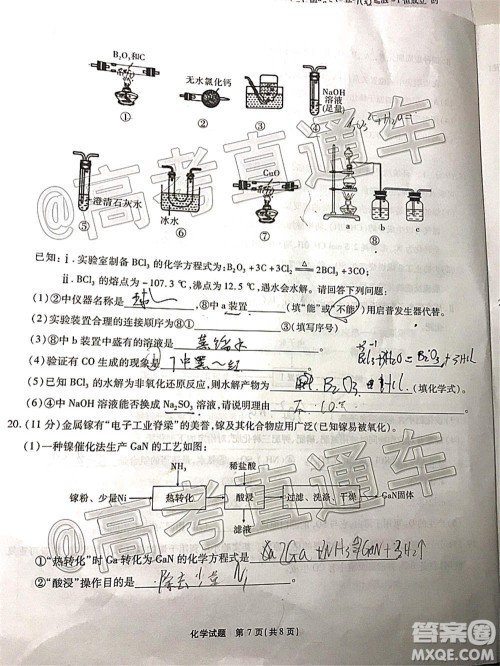 B₂O₃和C
无水氯化钙
NaOH
溶液
(足量)
①
②
③
④
CuO
澄清石灰水
冰水
a
b
c
⑤
⑥
⑦
⑧
已知:ⅰ.实验室制备 BCl₃ 的化学方程式为:B₂O₃+3C+3Cl₂ △ 2BCl₃+3CO;
ⅱ.BCl₃ 的熔点为－107.3 ℃,沸点为 12.5 ℃,遇水会水解。请回答下列问题:
(1)②中仪器名称是 ,⑧中 a 装置 (填“能”或“不能”)用启普发生器代替。
(2)实验装置合理的连接顺序为⑧① (填写序号)
(3)⑧中 b 装置中盛有的溶液是 蒸馏水
(4)验证有 CO 生成的现象是 ⑦中黑→红
(5)BCl₃ 的水解为非氧化还原反应,则水解产物为 B₂O₃ HCl (填化学式)。
(6)④中 NaOH 溶液能否换成 Na₂SO₃ 溶液,请说明理由
20.(11 分)金属镓有“电子工业脊梁”的美誉,镓及其化合物应用广泛(已知镓易被氧化)。
(1)一种镍催化法生产 GaN 的工艺如图:
NH₃ 稀盐酸
镓粉、少量Ni 热转化 酸浸 过滤、洗涤、干燥 GaN固体
滤液
①“热转化”时 Ga 转化为 GaN 的化学方程式是
②“酸浸”操作目的是 除去少量 Ni
化学试题 第 7 页(共 8 页)
@高考直通车
@高考直通车
@高考直通车
答案圈
MXQE.COM